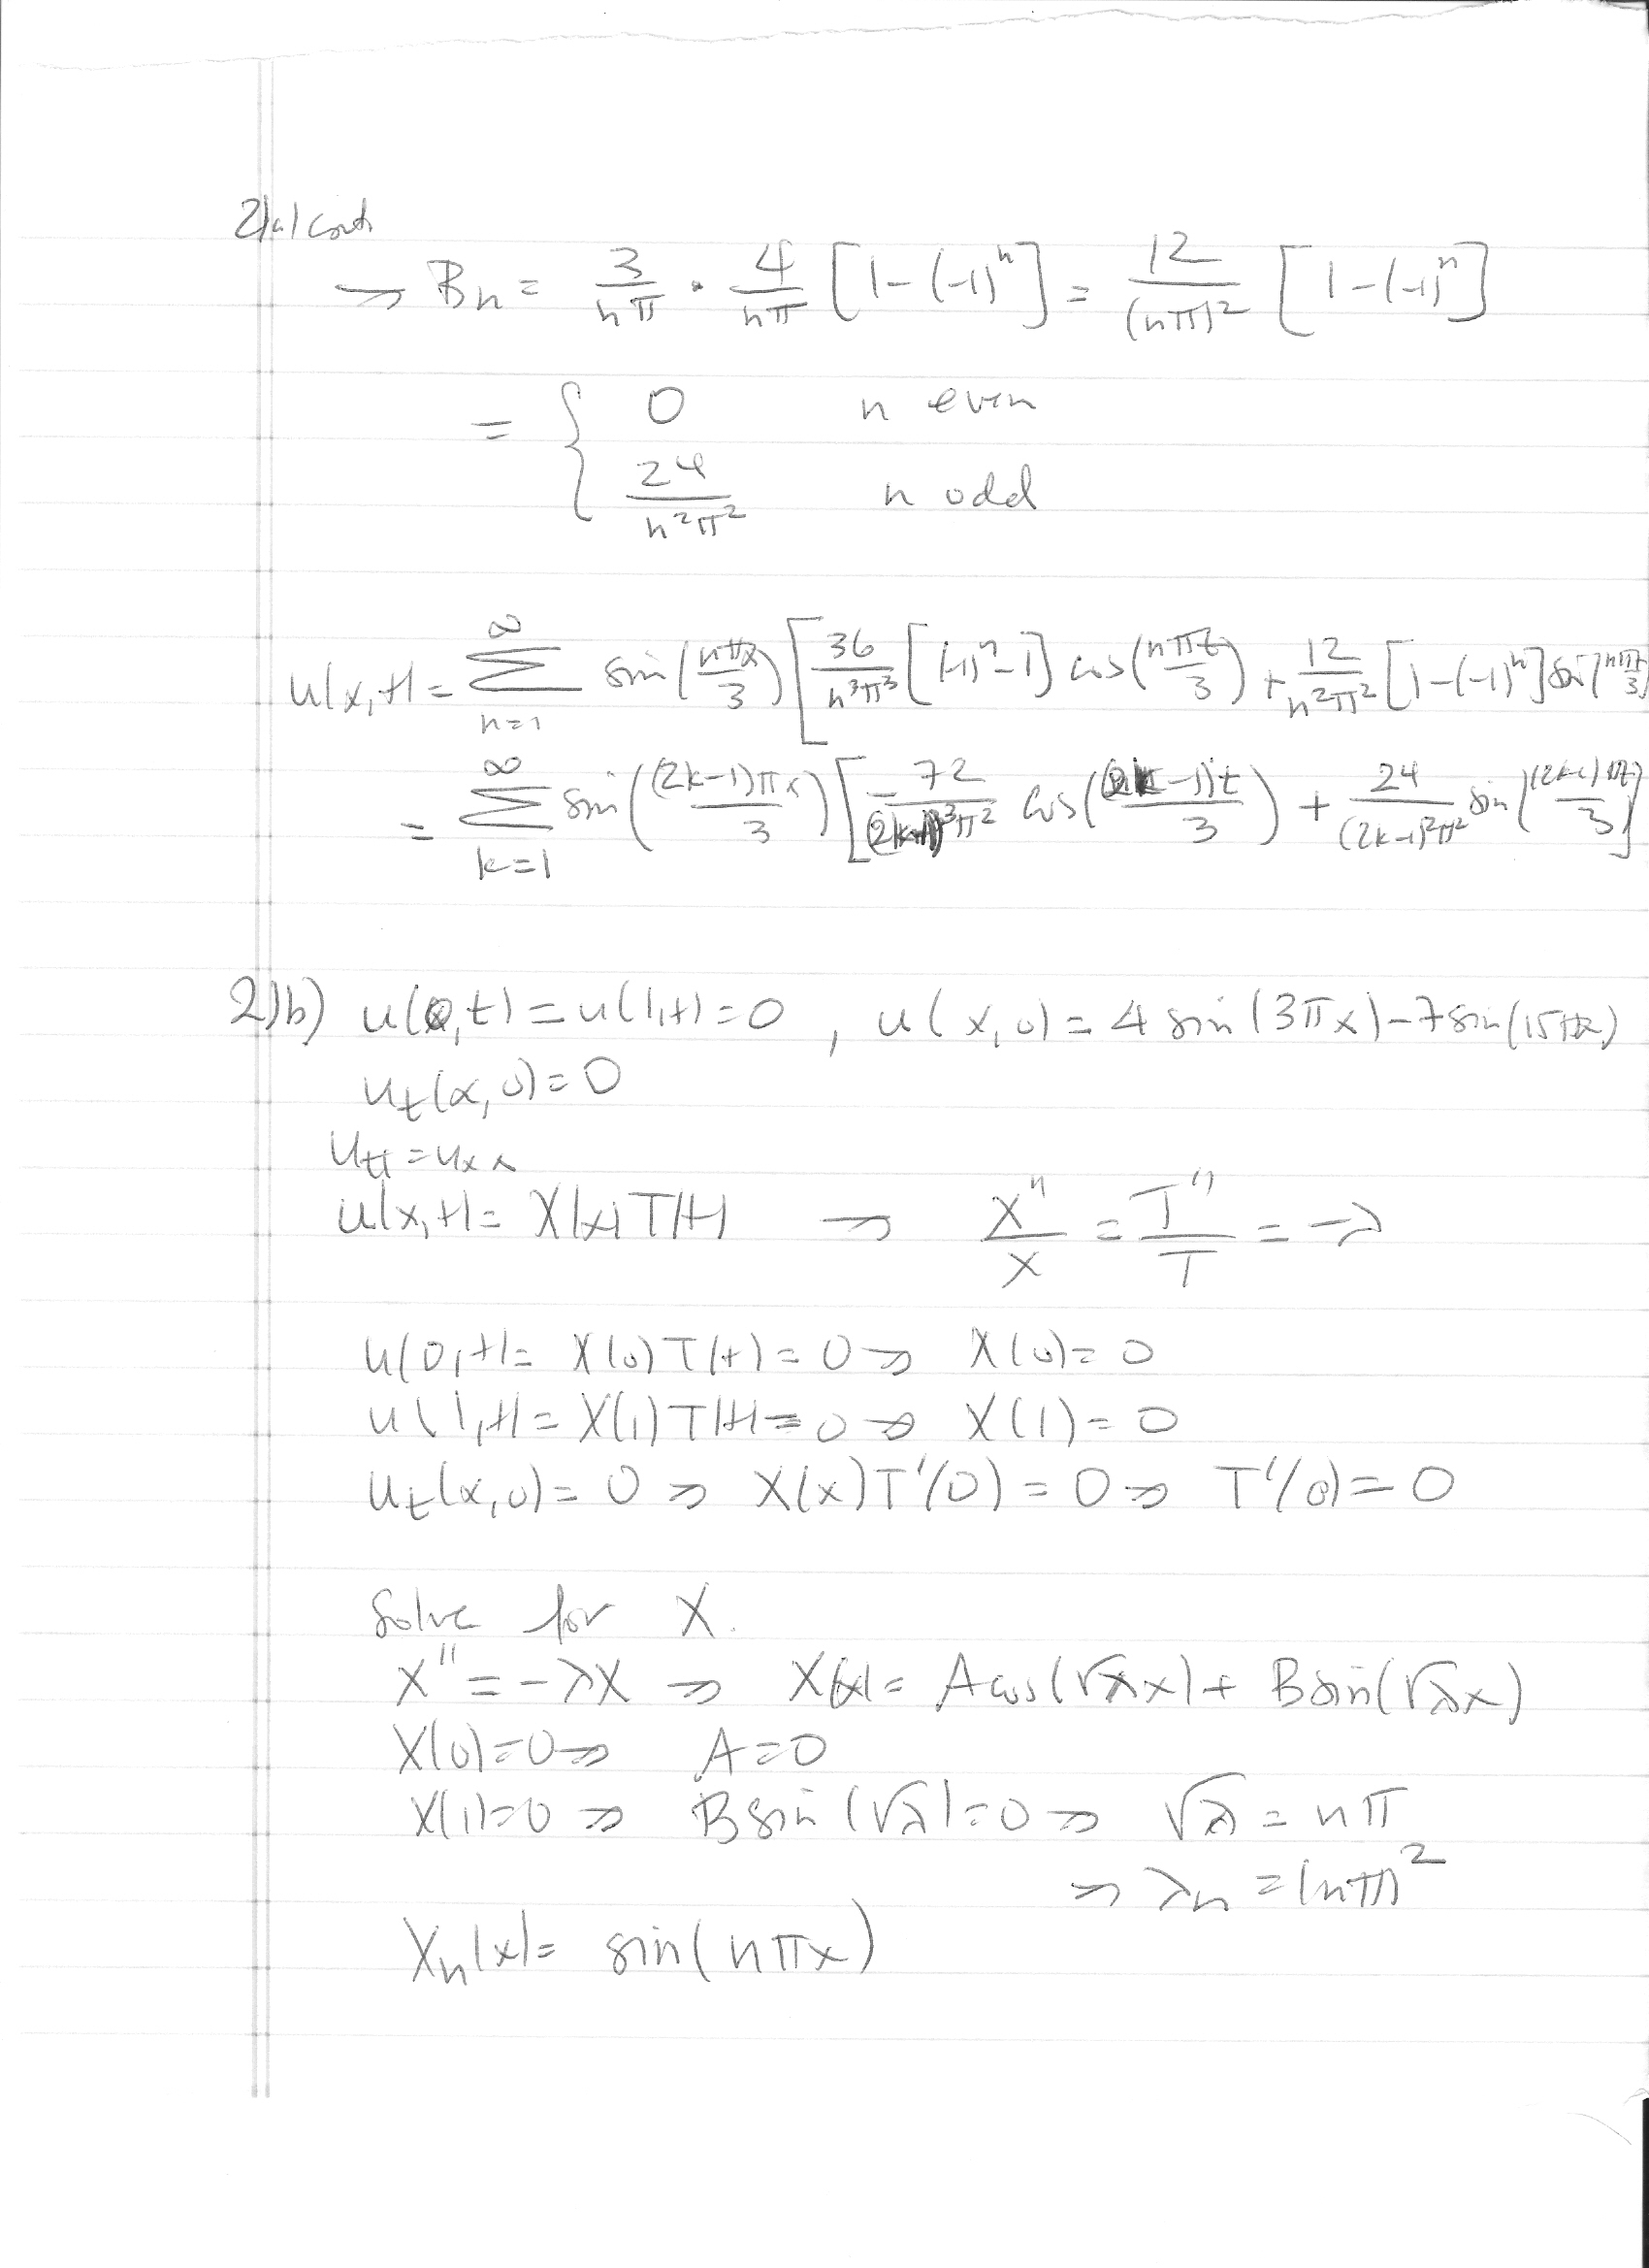 2)a) cont.
→ Bn = 3/(nπ) · 4/(nπ) [1-(-1)^n] = 12/(nπ)^2 [1-(-1)^n]
= { 0 n even
24/(n^2π^2) n odd
u(x,t) = ∑_{n=1}^∞ sin(nπx/3) [ 36/(n^3π^3) [(-1)^n-1] cos(nπt/3) + 12/(n^2π^2) [1-(-1)^n] sin(nπt/3)
= ∑_{k=1}^∞ sin((2k-1)πx/3) [ -72/((2k-1)^3π^2) cos((2k-1)t/3) + 24/((2k-1)^2π^2) sin((2k-1)πt/3) ]
2)b) u(0,t) = u(1,t) = 0 , u(x,0) = 4 sin(3πx) - 7 sin(15πx)
u_t(x,0) = 0
u_tt = u_xx
u(x,t) = X(x)T(t) → X''/X = T''/T = -λ
u(0,t) = X(0)T(t) = 0 → X(0) = 0
u(1,t) = X(1)T(t) = 0 → X(1) = 0
u_t(x,0) = 0 → X(x)T'(0) = 0 → T'(0) = 0
Solve for X.
X'' = -λX → X(x) = A cos(√λx) + B sin(√λx)
X(0) = 0 → A = 0
X(1) = 0 → B sin(√λ) = 0 → √λ = nπ
→ λn = (nπ)^2
Xn(x) = sin(nπx)